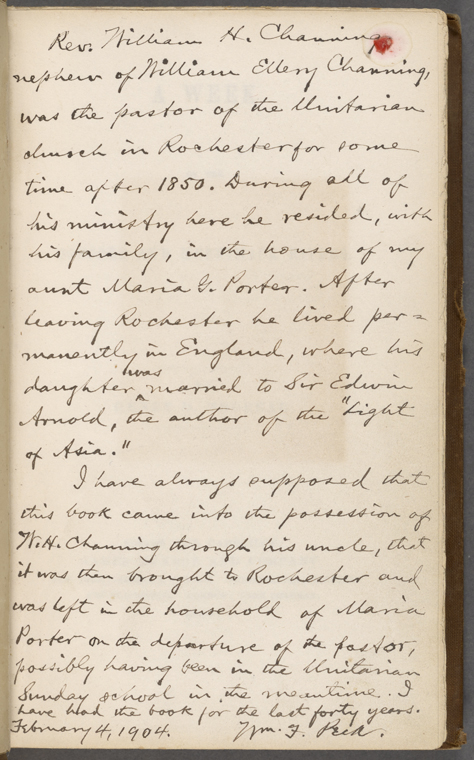 Rev. William H. Channing,
nephew of William Ellery Channing,
was the pastor of the Unitarian
church in Rochester for some
time after 1850. During all of
his ministry here he resided, with
his family, in the house of my
aunt Maria G. Porter. After
leaving Rochester he lived per=
manently in England, where his
daughter was married to Sir Edwin
Arnold, the author of the "Light
of Asia."
I have always supposed that
this book came into the possession of
W.H. Channing through his uncle, that
it was then brought to Rochester and
was left in the household of Maria
Porter on the departure of the pastor,
possibly having been in the Unitarian
Sunday school in the meantime. I
have had the book for the last forty years.
February 4, 1904. Wm. F. Peck.